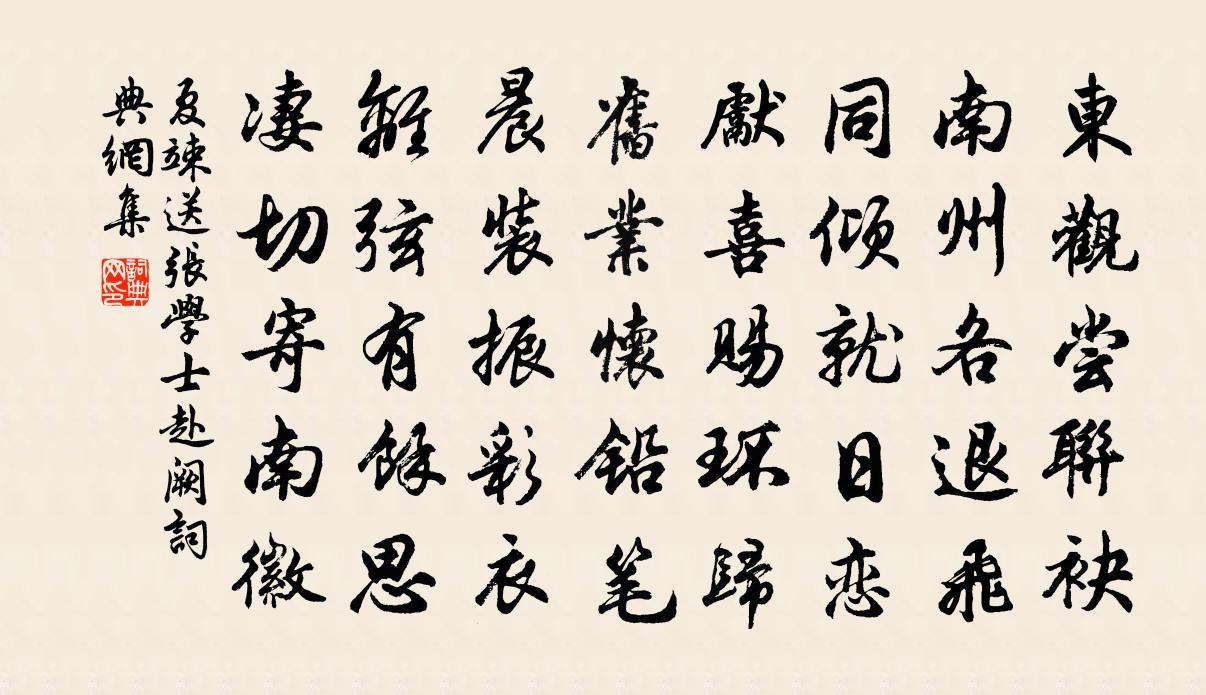 東觀尝聯袂
南州各退飛
同倾就日恋
獻喜賜环歸
舊業懷鉛笔
晨裝振彩衣
離弦有餘思
凄切寄南徽
夏竦送張學士赴阙詞
典網集
詞典
网印